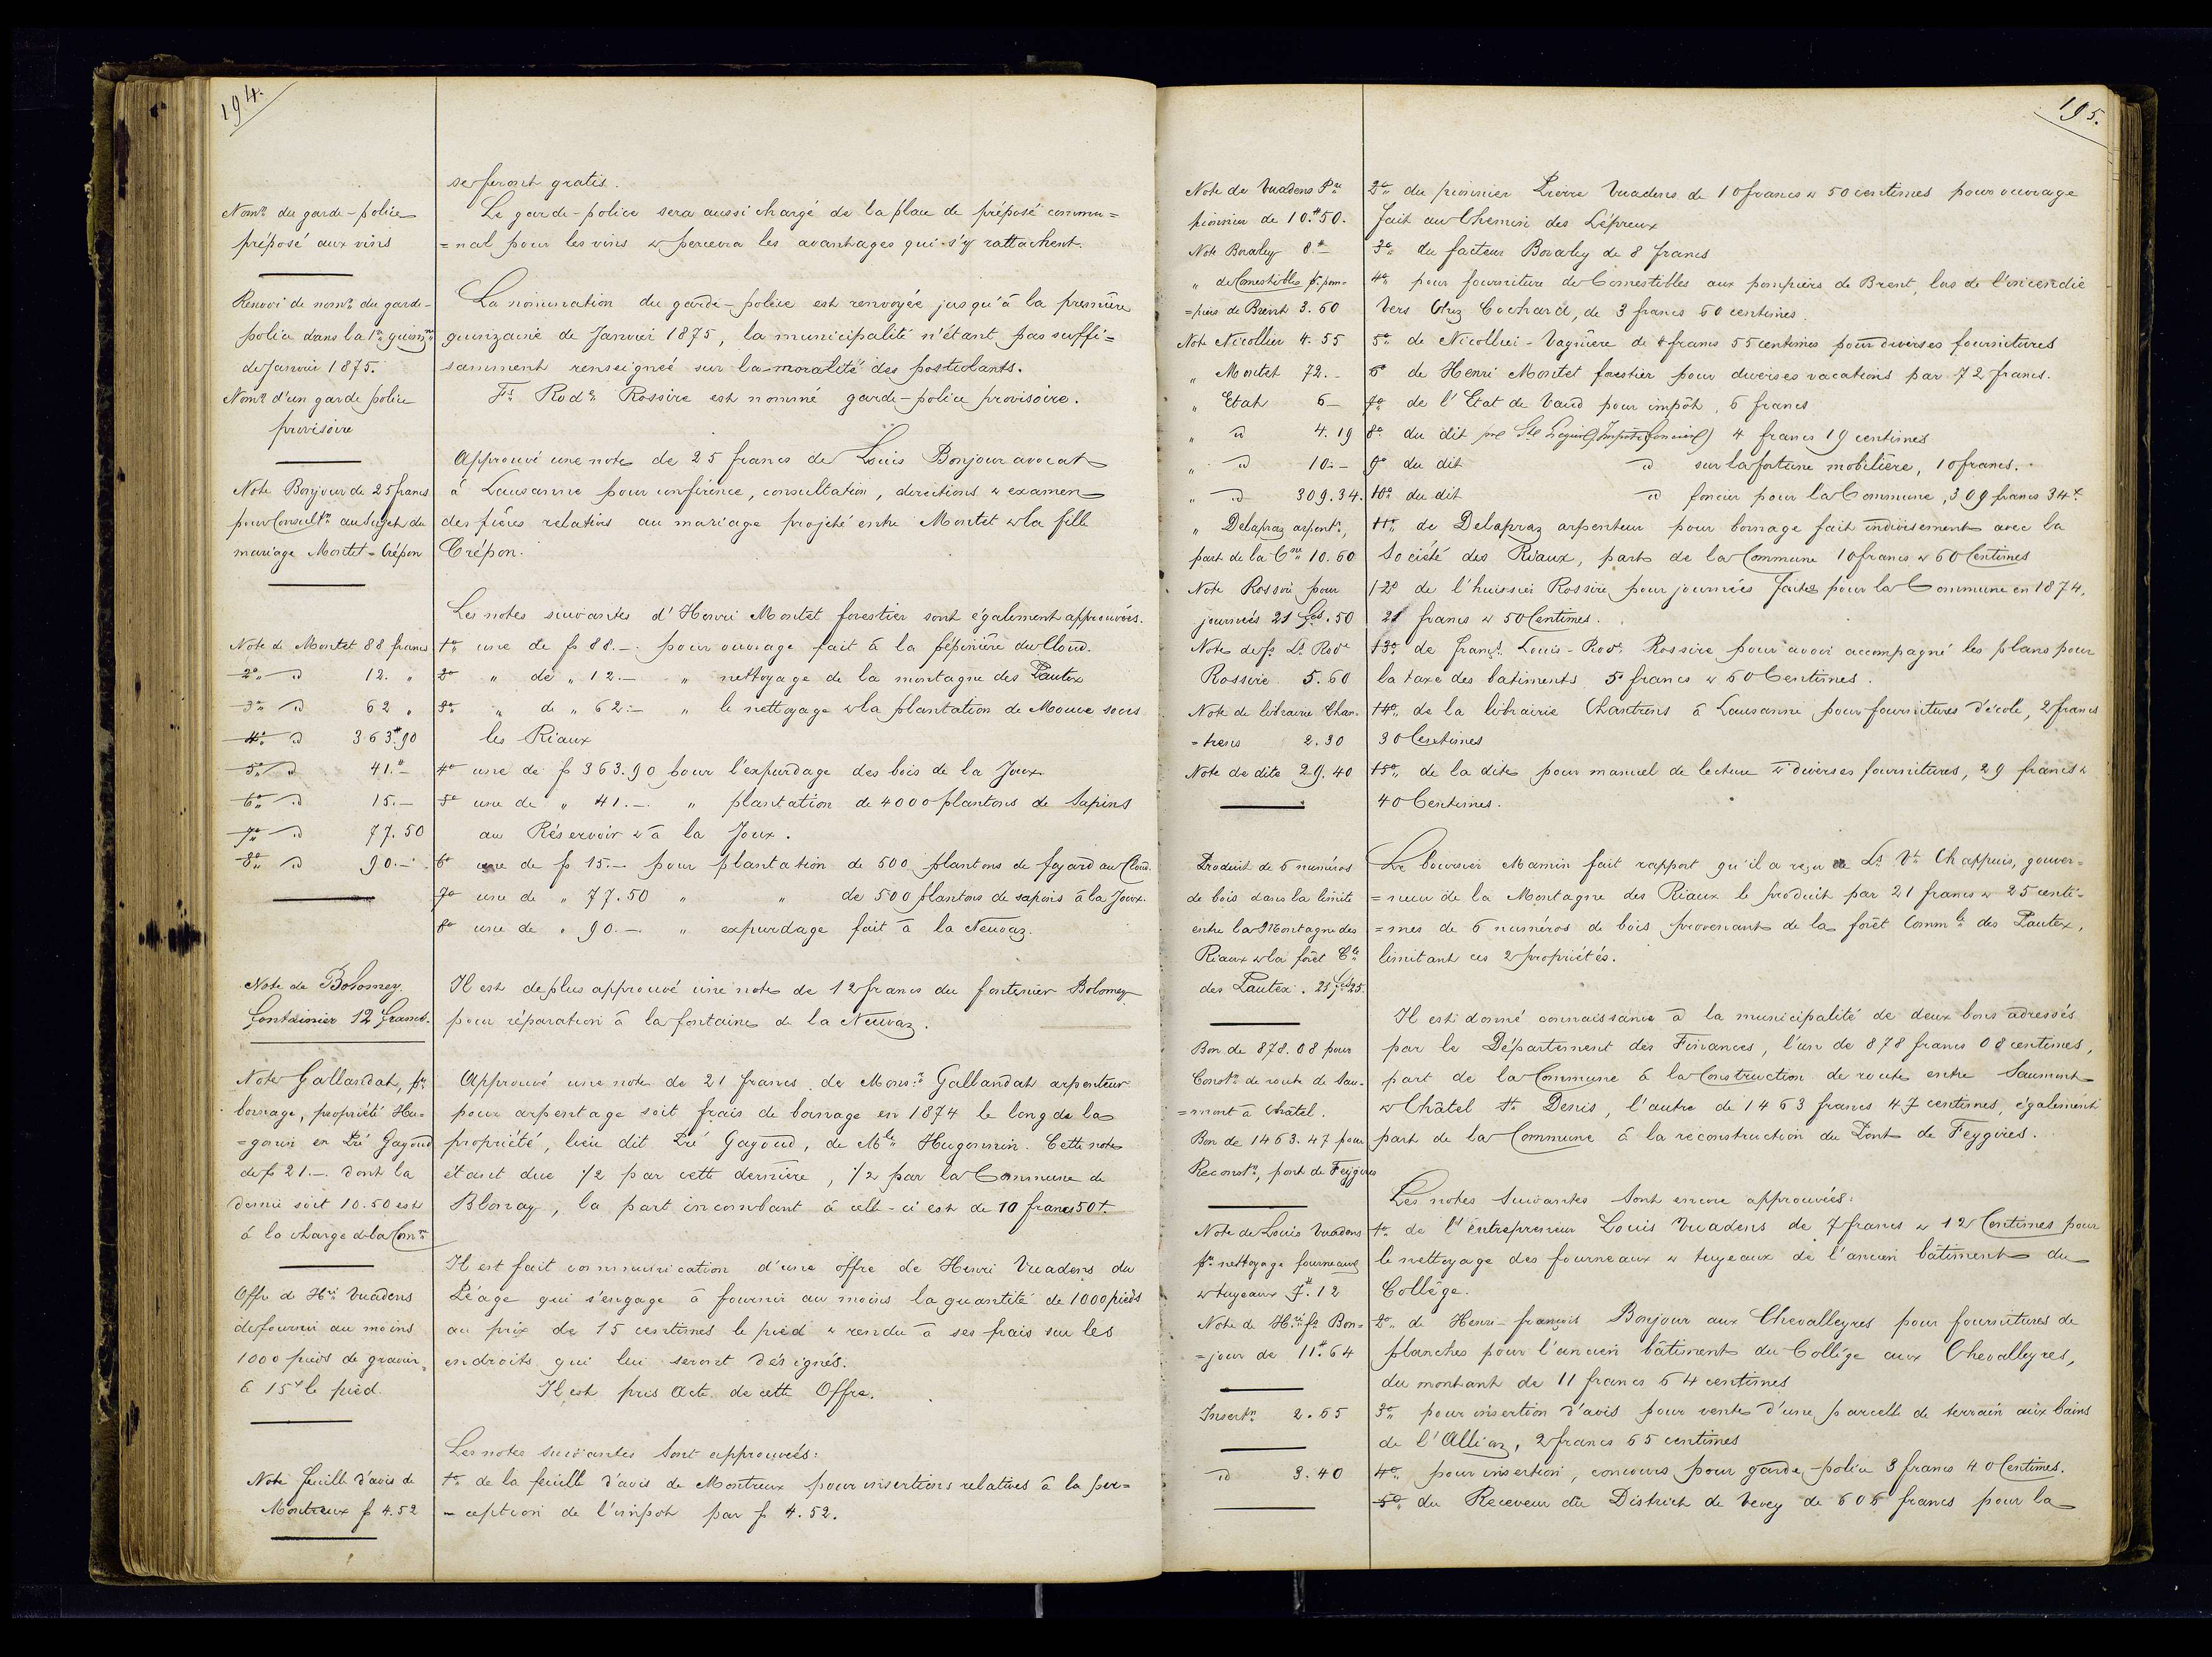 194.
se feront gratis.
Nomn du garde-police
préposé aux vins
Le garde-police sera aussi chargé de la place de préposé commu=
=nal pour les vins & percevra les avantages qui s'y rattachent.
Renvoi de nomn du garde-
police dans la 1re quinzne
de Janvier 1875.
Nomn d'un garde police
provisoire
La nomination du garde-police est renvoyée jusqu'à la première
quinzaine de Janvier 1875, la municipalité n'étant pas suffi=
samment renseignée sur la moralité des postulants.
Fs Rode Rossire est nommé garde-police provisoire.
Note Bonjour de 25 francs
pour Consultn au Sujet du
mariage Montet-Crépon
Approuvé une note de 25 francs de Louis Bonjour avocat
à Lausanne pour conférence, consultation, directions & examen
des pièces relatives au mariage projeté entre Montet & la fille
Crépon.
Les notes suivantes d'Henri Montet forestier sont également approuvées.
Note de Montet 88 francs
2o " d 12. "
3o " d 62 "
4o d 363.90
5o d 41.-
6o d 15.-
7o d 77.50
8o d 90.-
1o une de fs 88.- pour ouvrage fait à la pépinière du Cloud.
2o " de " 12.- " nettoyage de la montagne des Pautex
3o " de " 62.- " le nettoyage & la plantation de Mouve sous
les Riaux
4o une de fs 363.90 pour l'expurdage des bois de la Joux
5o une de " 41.- " plantation de 4000 plantons de Sapins
au Réservoir & à la Joux.
6o une de fs 15.- pour plantation de 500 plantons de foyard au Cloud.
7o une de " 77.50 " " de 500 plantons de sapins à la Joux.
8o une de " 90.- " expurdage fait à la Neuvaz.
Note de Bolomey
fontainier 12 francs.
Il est de plus approuvé une note de 12 francs du fontenier Bolomey
pour réparation à la fontaine de la Neuvaz.
Note Gallandat, pr
bornage, propriété Hu=
=gonin en Pré Gayoud
de fs 21.- dont la
demie soit 10.50 est
à la charge de la Comne
Approuvé une note de 21 francs de Monsr Gallandat arpenteur
pour arpentage soit frais de bornage en 1874 le long de la
propriété, lieu dit Pré Gayoud, de Mlle Hugonnin. Cette note
étant due 1/2 par cette dernière, 1/2 par la Commune de
Blonay, la part incombant à celle-ci est de 10 francs 50 c.
Offre de Hri Vuadens
de fournir au moins
1000 pieds de gravier
à 15 c le pied.
Il est fait communication d'une offre de Henri Vuadens du
Péage qui s'engage à fournir au moins la quantité de 1000 pieds
au prix de 15 centimes le pied & rendu à ses frais sur les
endroits qui lui seront désignés.
Il est pris Acte de cette Offre.
Les notes suivantes sont approuvées:
Note feuille d'avis de
Montreux fs 4.52
1o de la feuille d'avis de Montreux pour insertions relatives à la per=
=ception de l'impôt par fs 4.52.
195.
Note de Vuadens Pre
pionnier de 10.50.
Note Bovaley 8 -
" de Comestibles pr pom=
=piers de Brent 3.60
Note Nicollier 4.55
" Montet 72.-
" Etat 6-
" d 4.19
" d 10.-
" d 309.34.
" Delapraz arpentr,
part de la Cne 10.60
Note Rossire pour
journées 21 fcs.50
Note de fs Ls Rode
Rossire 5.60
Note de librairie Chan-
=trens 2.30
Note de dite 29.40
2o du pionnier Pierre Vuadens de 10 francs & 50 centimes pour ouvrage
fait au Chemin des Lépreux
3o du facteur Bovaley de 8 francs
4o pour fourniture de Comestibles aux pompiers de Brent, lors de l'incendie
vers Chez Cochard, de 3 francs 60 centimes.
5o de Nicollier-Vagnière de 4 francs 55 centimes pour diverses fournitures
6o de Henri Montet forestier pour diverses vacations par 72 francs.
7o de l'Etat de Vaud pour impôt, 6 francs
8o du dit pre Ste Légier (Impôt foncier) 4 francs 19 centimes
9o du dit d sur la fortune mobilière, 10 francs.
10o du dit d foncier pour la Commune, 309 francs 34 c.
11o de Delapraz arpenteur pour bornage fait indivisement avec la
Société des Riaux, part de la Commune 10 francs & 60 Centimes
12o de l'huissier Rossire pour journées faites pour la Commune en 1874,
21 francs & 50 Centimes.
13o de Françs Louis-Rode Rossire pour avoir accompagné les plans pour
la taxe des batiments 5 francs & 60 Centimes.
14o de la librairie Chantrens à Lausanne pour fournitures d'école, 2 francs
30 Centimes
15o de la dite pour manuel de lecture & diverses fournitures, 29 francs &
40 Centimes.
Produit de 6 numéros
de bois dans la limite
entre la Montagne des
Riaux & la forêt Cle
des Pautex. 21 fcs 25.
Le boursier Mamin fait rapport qu'il a reçu de Ls Vt Chappuis, gouver=
=neur de la Montagne des Riaux le produit par 21 francs & 25 centi-
=mes de 6 numéros de bois provenant de la forêt Commle des Pautex,
limitant ces 2 propriétés.
Bon de 878.08 pour
Constn de route de Sau-
=mont à Châtel.
Bon de 1463.47 pour
Reconstn, pont de Feygires
Il est donné connaissance à la municipalité de deux bons adressés
par le Département des Finances, l'un de 878 francs 08 centimes,
part de la Commune à la Construction de route entre Saumont
& Châtel St Denis, l'autre de 1463 francs 47 centimes, également
part de la Commune à la reconstruction du Pont de Feygires.
Les notes suivantes sont encore approuvées:
Note de Louis Vuadens
pr nettoyage fourneaux
& tuyeaux 7.12
Note de Hri fs Bon=
=jour de 11.64
Insertn 2.65
d 3.40
1o de l'entrepreneur Louis Vuadens de 7 francs & 12 Centimes pour
le nettoyage des fourneaux & tuyeaux de l'ancien bâtiment du
Collège.
2o de Henri-françois Bonjour aux Chevalleyres pour fournitures de
planches pour l'ancien bâtiment du Collège aux Chevalleyres,
du montant de 11 francs 64 centimes
3o pour insertion d'avis pour vente d'une parcelle de terrain aux bains
de l'Alliaz, 2 francs 65 centimes
4o pour insertion, concours pour garde-police 3 francs 40 Centimes.
5o du Receveur du District de Vevey de 606 francs pour la